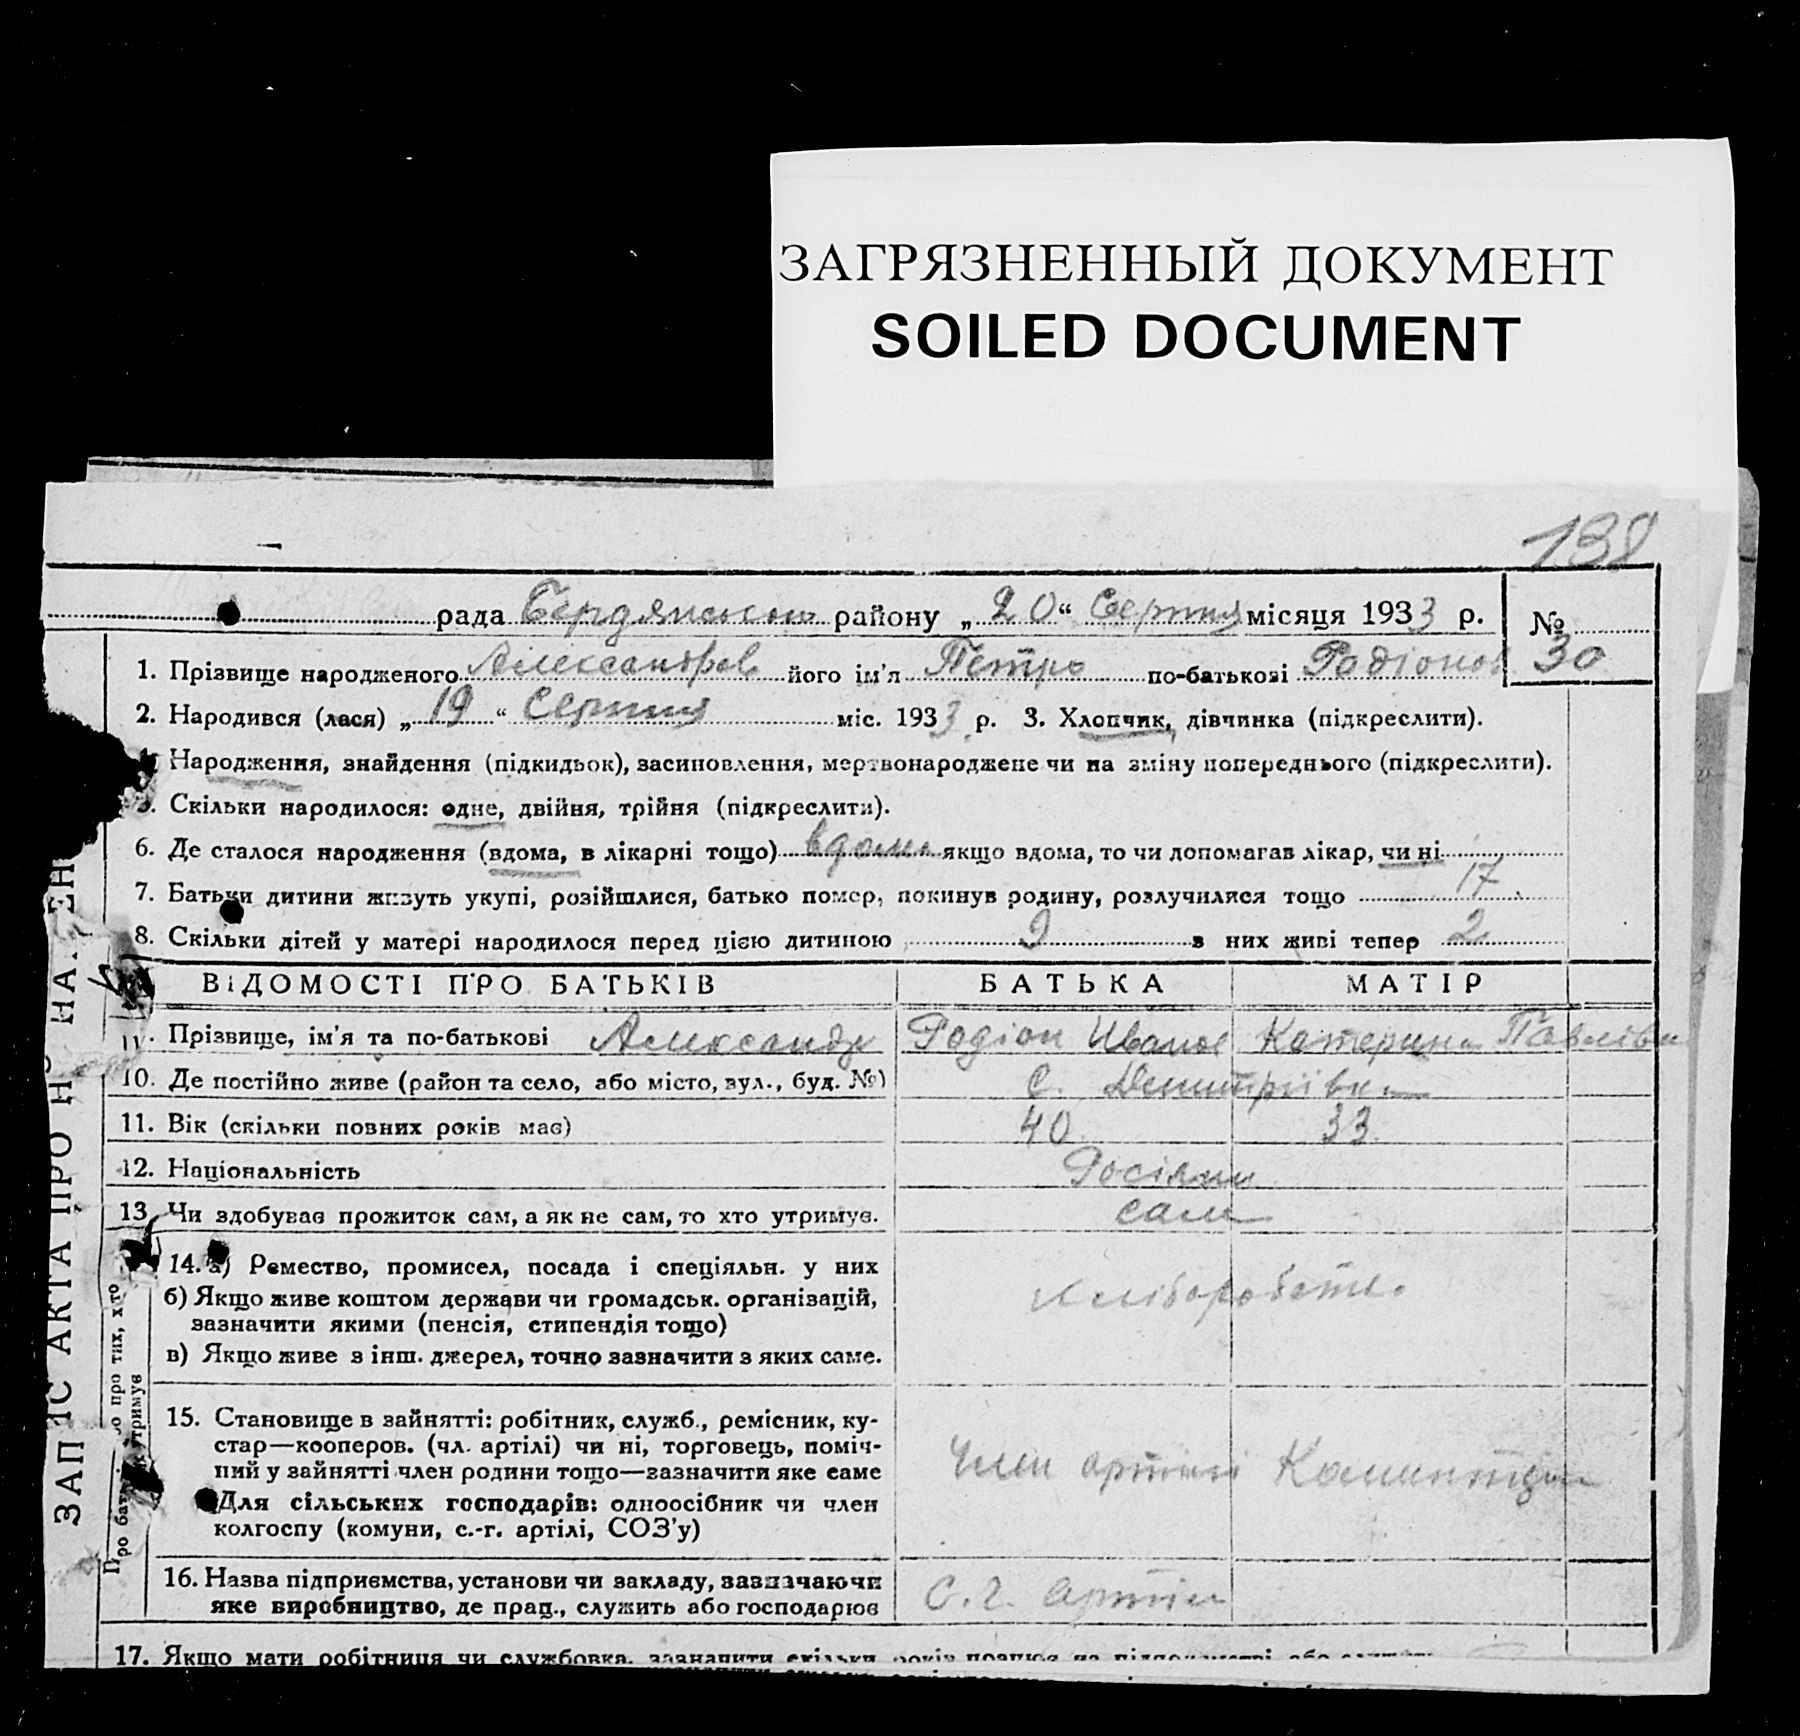 ЗАГРЯЗНЕННЫЙ ДОКУМЕНТ
SOILED DOCUMENT
138
рада Бердянського району „20“ Серпня місяця 1933 р. № 30
1. Прізвище народженого Александров його ім'я Петро по-батькові Родіонов
2. Народився (лася) „19“ Серпня міс. 1933 р. 3. Хлопчик, дівчинка (підкреслити).
Народження, знайдення (підкидьок), засиновлення, мертвонароджене чи на зміну попереднього (підкреслити).
5. Скільки народилося: одне, двійня, трійня (підкреслити).
6. Де сталося народження (вдома, в лікарні тощо) вдома якщо вдома, то чи допомагав лікар, чи ні
7. Батьки дитини живуть укупі, розійшлися, батько помер, покинув родину, розлучилися тощо 17
8. Скільки дітей у матері народилося перед цією дитиною 9 з них живі тепер 2
ВІДОМОСТІ ПРО БАТЬКІВ БАТЬКА МАТІР
Прізвище, ім'я та по-батькові Александр Родіон Иванов Катерина Павлівна
10. Де постійно живе (район та село, або місто, вул., буд. №) С. Дмитрівка
11. Вік (скільки повних років має) 40 33
12. Національність Росіяни
13. Чи здобуває прожиток сам, а як не сам, то хто утримує. сам
14. а) Ремество, промисел, посада і спеціяльн. у них
б) Якщо живе коштом держави чи громадськ. організацій,
зазначити якими (пенсія, стипендія тощо)
в) Якщо живе з інш. джерел, точно зазначити з яких саме.
хліборобств.
15. Становище в зайнятті: робітник, служб., ремісник, ку-
стар—кооперов. (чл. артілі) чи ні, торговець, поміч-
ний у зайнятті член родини тощо—зазначити яке саме
Для сільських господарів: одноосібник чи член
колгоспу (комуни, с.-г. артілі, СОЗ'у)
Член артілі
16. Назва підприємства, установи чи закладу, зазначаючи
яке виробництво, де прац., служить або господарює
С. г. артіль
17. Якщо мати робітниця чи службовка, зазначити скільки років працює на підприємстві або
ЗАПИС АКТА ПРО НА
Про бать
про тих, хто
утримує